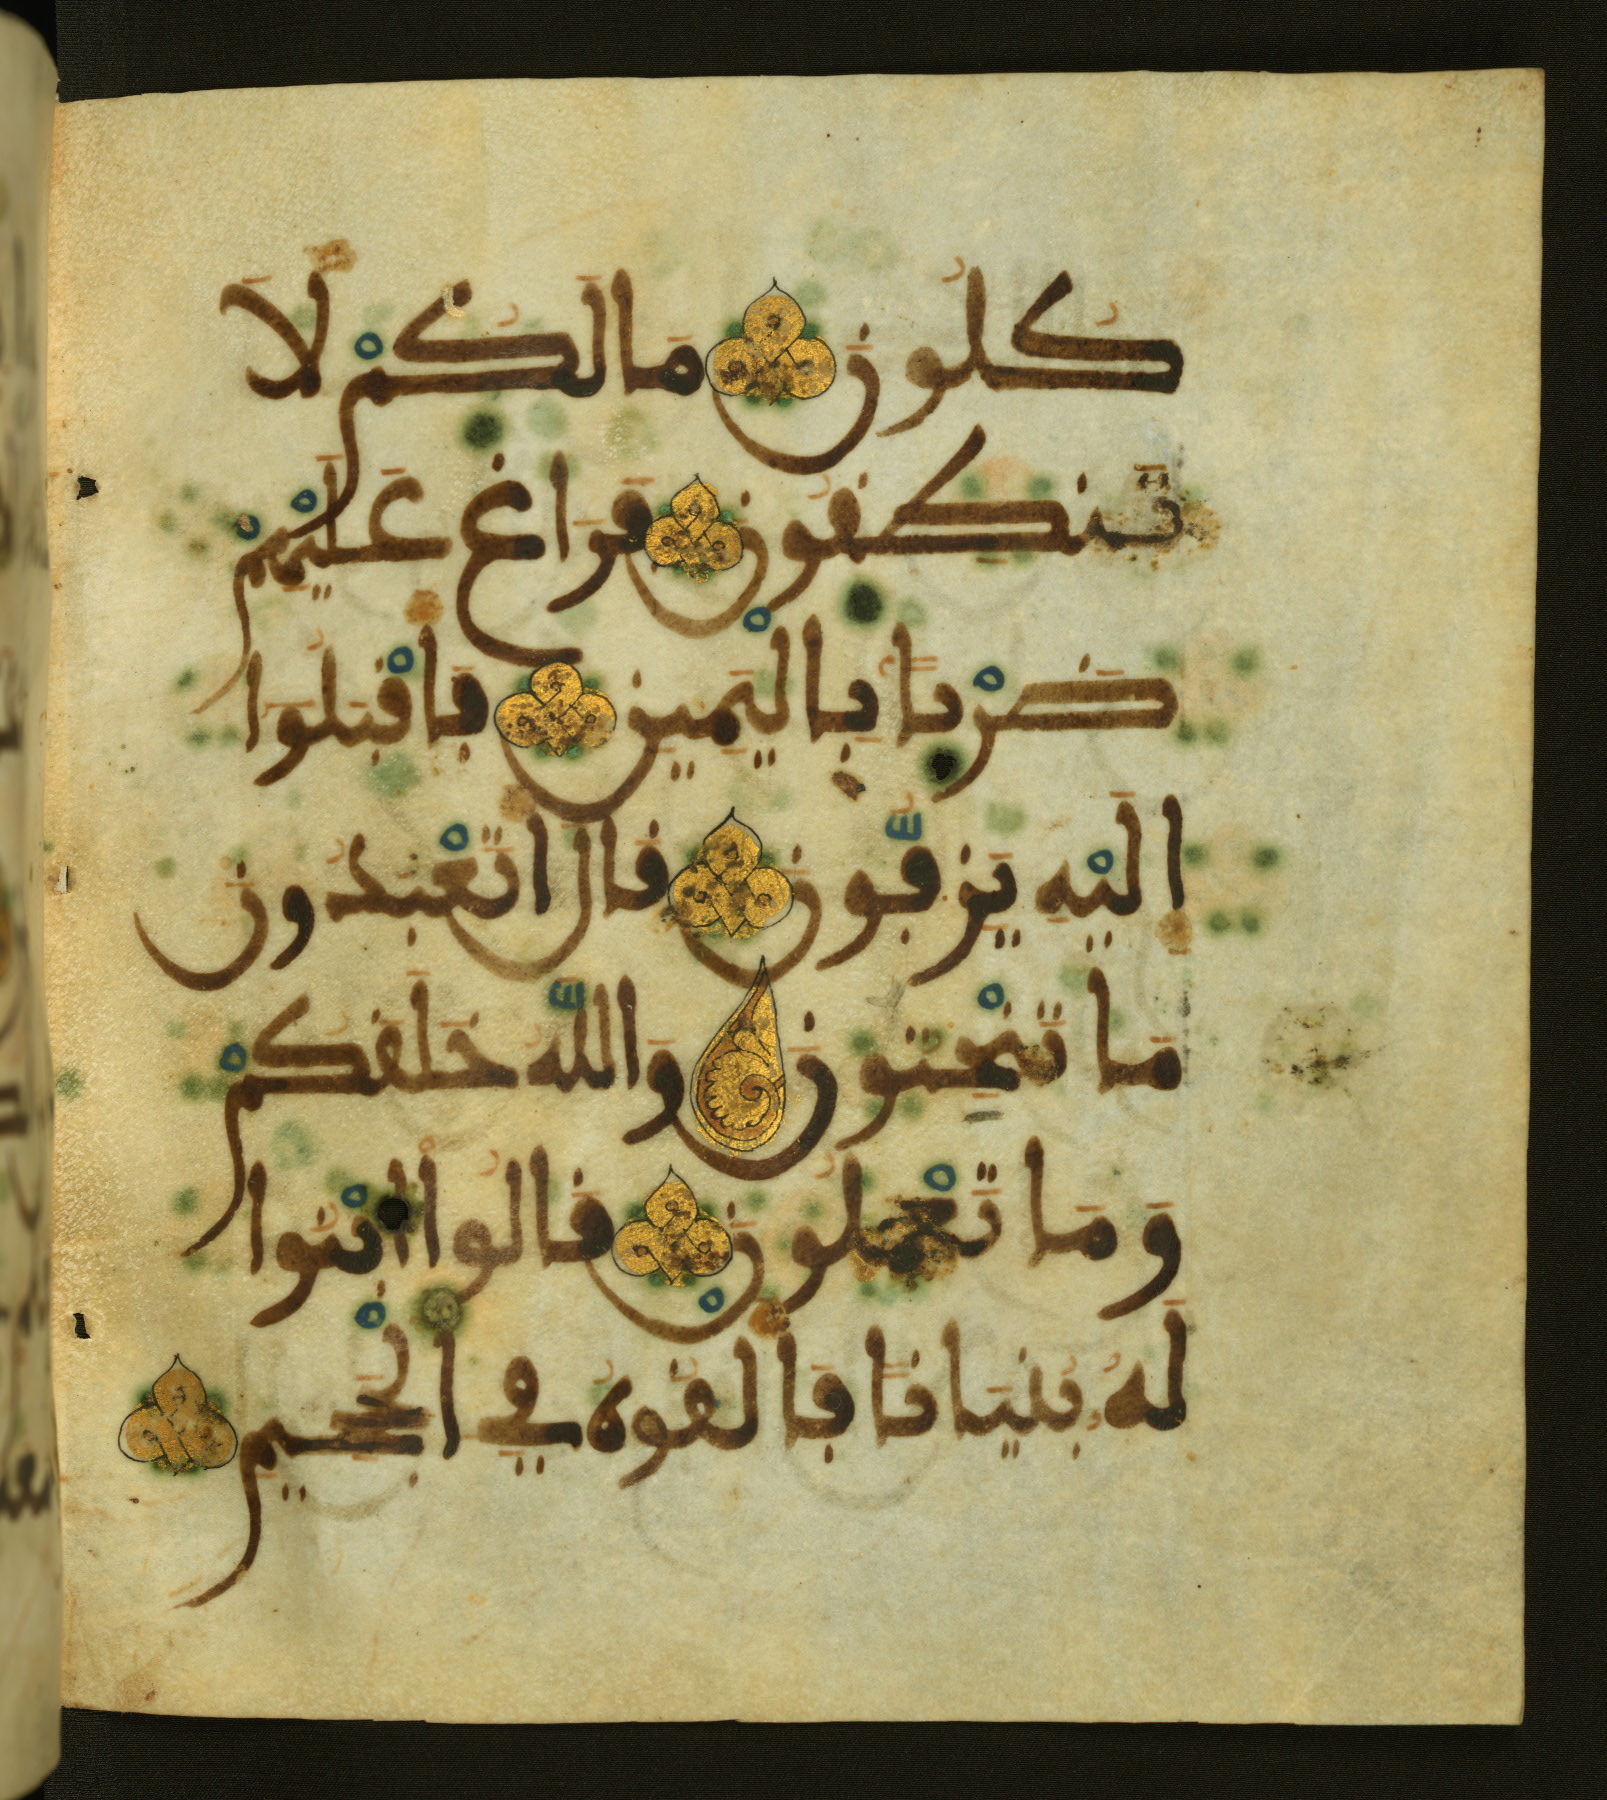 كُلُونَ مَا لَكُمْ لَا
تَنطِقُونَ فَرَاغَ عَلَيْهِمْ
ضَرْبًا بِالْيَمِينِ فَأَقْبَلُوا
إِلَيْهِ يَزِفُّونَ قَالَ أَتَعْبُدُونَ
مَا تَنْحِتُونَ وَاللَّهُ خَلَقَكُمْ
وَمَا تَعْمَلُونَ قَالُوا ابْنُوا
لَهُ بُنْيَانًا فَأَلْقُوهُ فِي الْجَحِيمِ